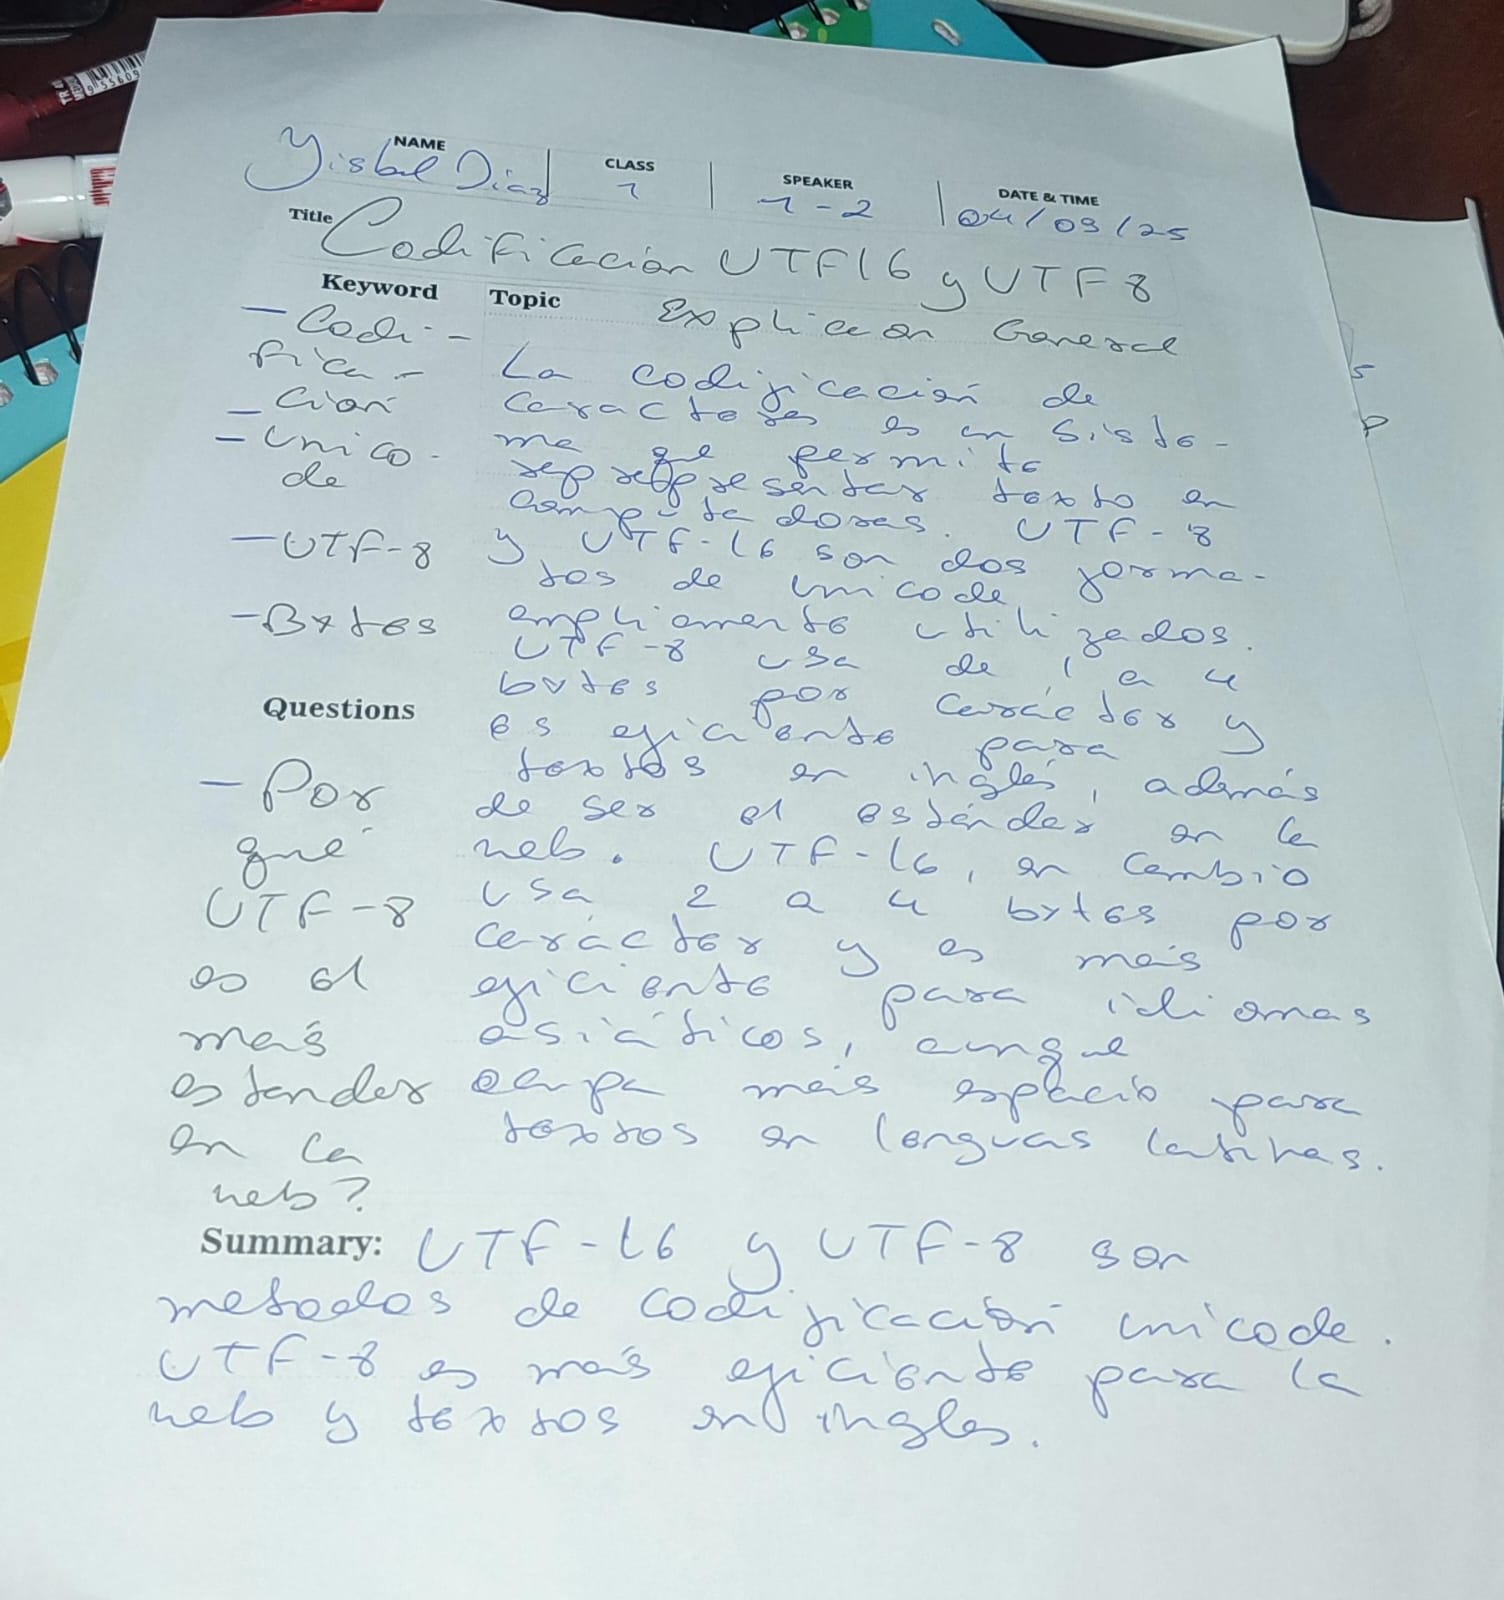 NAME CLASS SPEAKER DATE & TIME
Yisbel Diaz 1 1-2 04/09/25
Title Codificación UTF16 y UTF8
Keyword Topic Explicacion General
- Codi-
fica-
- ción
- Unico-
de
- UTF-8
- Bytes
La codificación de
caracteres es un siste-
ma que permite
representar texto en
computadoras. UTF-8
y UTF-16 son dos forma-
tos de unicode
ampliamente utilizados.
UTF-8 usa de 1 a 4
bytes por carácter y
es eficiente para
textos en inglés, además
de ser el estándar en la
web. UTF-16, en cambio
usa 2 a 4 bytes por
carácter y es más
eficiente para idiomas
asiáticos, aunque
ocupa más espacio para
textos en lenguas latinas.
Questions
- Por
qué
UTF-8
es el
más
estandar
en la
web?
Summary: UTF-16 y UTF-8 son
metodos de codificación unicode.
UTF-8 es más eficiente para la
web y textos en ingles.